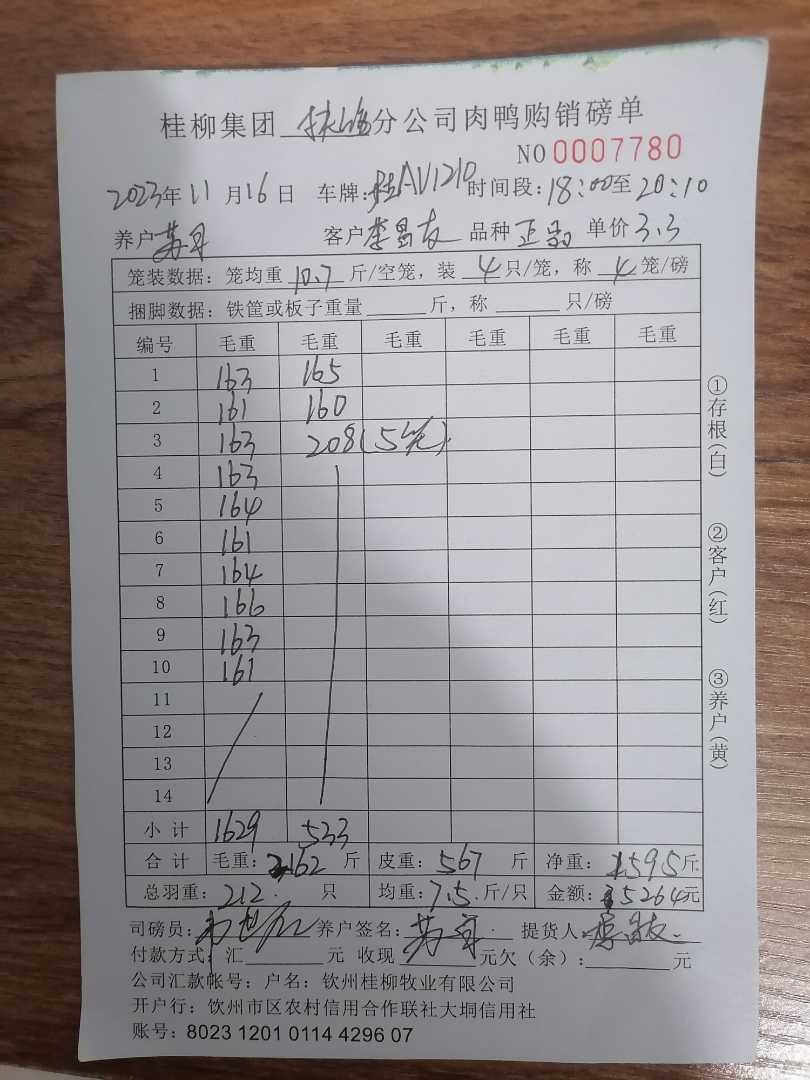 桂柳集团 扶绥 分公司肉鸭购销磅单
NO 0007780
2023年11月16日 车牌:桂AV1210 时间段:18:00至20:10
养户 客户 李昌友 品种 正品 单价 3.3
笼装数据:笼均重 10.7 斤/空笼,装 4 只/笼,称 4 笼/磅
捆脚数据:铁筐或板子重量 斤,称 只/磅
编号 毛重 毛重 毛重 毛重 毛重 毛重
1 163 165
2 161 160
3 163 208(5笼)
4 163
5 164
6 161
7 164
8 166
9 163
10 161
11
12
13
14
小计 1629 533
合计 毛重:2162斤 皮重:567斤 净重:1595斤
总羽重:212.只 均重:7.5.斤/只 金额:5264元
司磅员: 养户签名: 提货人:李昌友
付款方式:汇 元 收现 元欠(余): 元
公司汇款帐号:户名:钦州桂柳牧业有限公司
开户行:饮州市区农村信用合作联社大垌信用社
账号:8023 1201 0114 4296 07
①存根(白)
②客户(红)
③养户(黄)